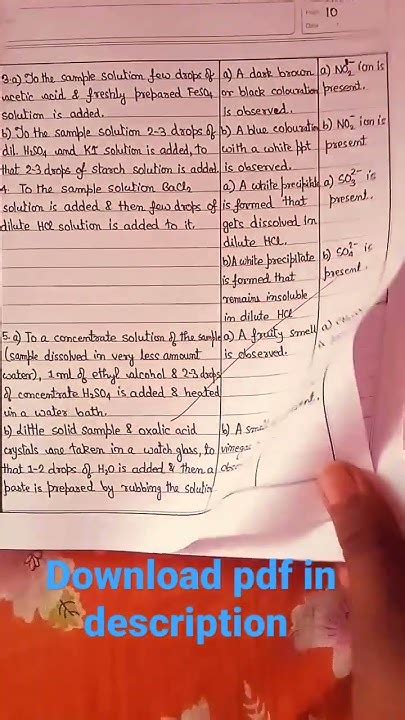 Page 10
Date
3.a) To the sample solution few drops of
acetic acid & freshly prepared FeSO4
solution is added.
b) To the sample solution 2-3 drops of
dil. H2SO4 and KI solution is added, to
that 2-3 drops of starch solution is added.
4. To the sample solution BaCl2
solution is added & then few drops of
dilute HCl solution is added to it.
5.a) To a concentrate solution of the sample
(sample dissolved in very less amount
water), 1ml of ethyl alcohol & 2-3 drops
of concentrate H2SO4 is added & heated
in a water bath.
b) little solid sample & oxalic acid
crystals are taken in a watch glass, to
that 1-2 drops of H2O is added & then a
paste is prepared by rubbing the solution
a) A dark brown
or black colouration
is observed.
b) A blue colouration
with a white ppt
is observed.
a) A white precipitate
is formed that
gets dissolved in
dilute HCl.
b) A white precipitate
is formed that
remains insoluble
in dilute HCl
a) A fruity smell
is observed.
b) A
vinegar
a) NO2- ion is
present.
b) NO2- ion is
present
a) SO3 2- is
present.
b) SO4 2- is
present.
a)
Download pdf in
description